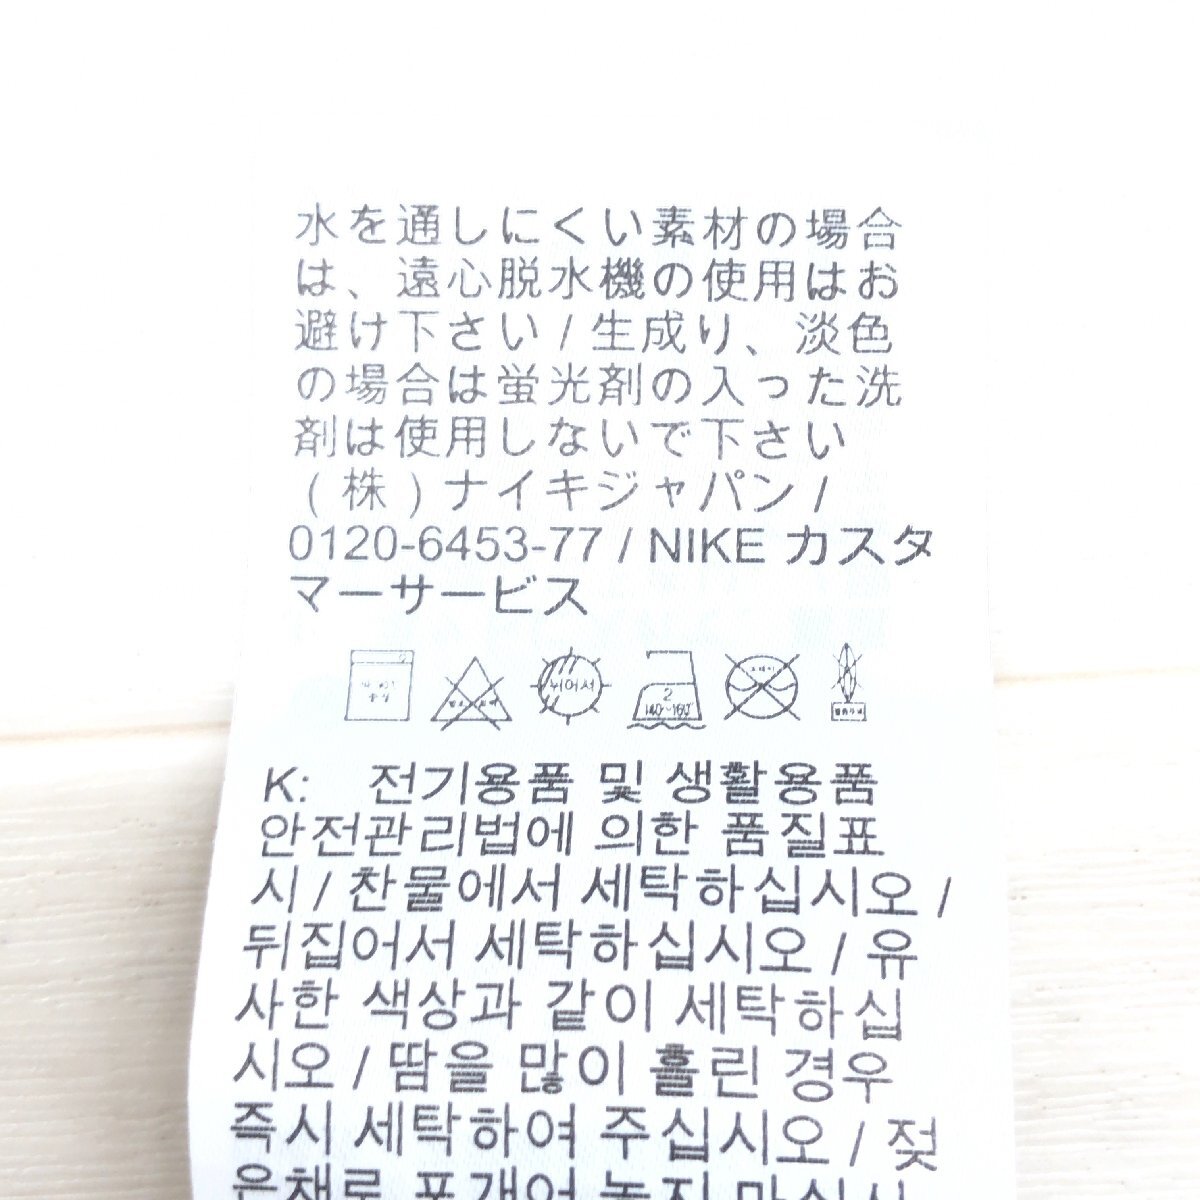 水を通しにくい素材の場合
は、遠心脱水機の使用はお
避け下さい / 生成り、淡色
の場合は蛍光剤の入った洗
剤は使用しないで下さい
(株)ナイキジャパン /
0120-6453-77 / NIKE カスタ
マーサービス
뉘어서
2
140~160
K: 전기용품 및 생활용품
안전관리법에 의한 품질표
시 / 찬물에서 세탁하십시오 /
뒤집어서 세탁하십시오 / 유
사한 색상과 같이 세탁하십
시오 / 땀을 많이 흘린 경우
즉시 세탁하여 주십시오 / 젖
은채로 포개어 놓지 마십시